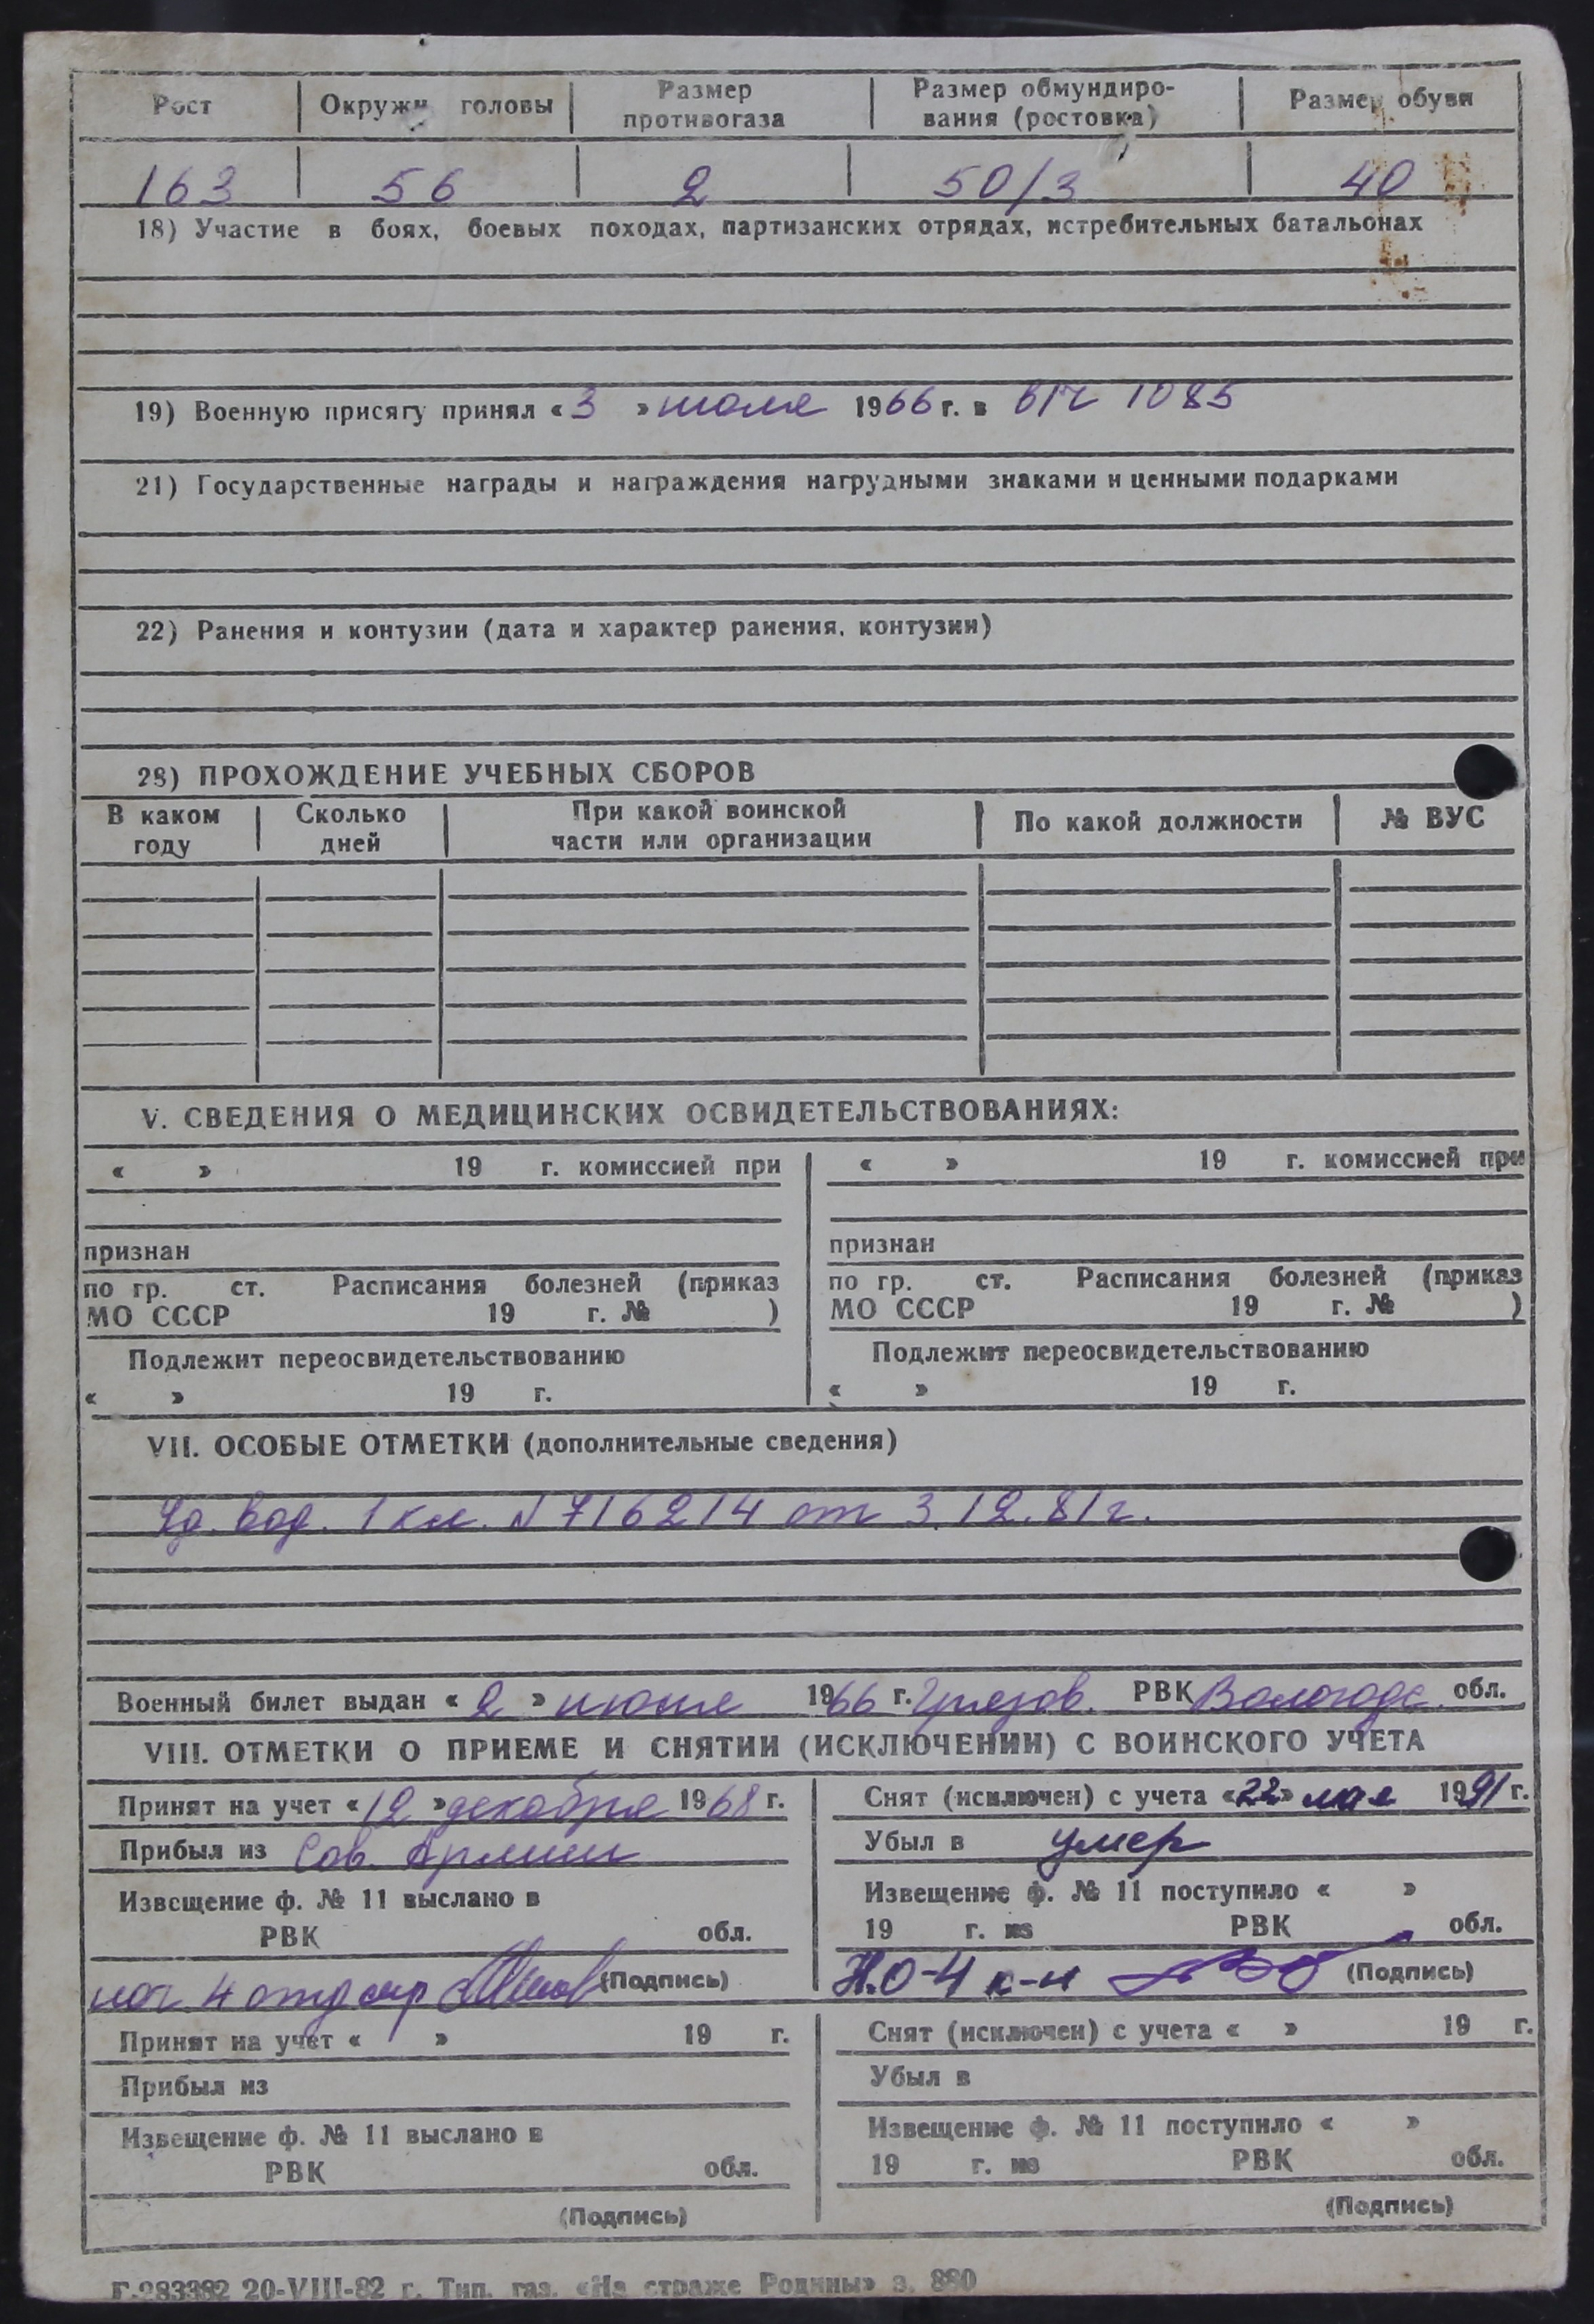 Рост Окружн головы Размер противогаза Размер обмундирования (ростовка) Размер обуви
163 56 2 50/3 40
18) Участие в боях, боевых походах, партизанских отрядах, истребительных батальонах
19) Военную присягу принял «3» июля 1966 г. в в/ч 1085
21) Государственные награды и награждения нагрудными знаками и ценными подарками
22) Ранения и контузии (дата и характер ранения, контузии)
28) ПРОХОЖДЕНИЕ УЧЕБНЫХ СБОРОВ
В каком году Сколько дней При какой воинской части или организации По какой должности № ВУС
V. СВЕДЕНИЯ О МЕДИЦИНСКИХ ОСВИДЕТЕЛЬСТВОВАНИЯХ:
« » 19 г. комиссией при
признан
по гр. ст. Расписания болезней (приказ
МО СССР 19 г. № )
Подлежит переосвидетельствованию
« » 19 г.
« » 19 г. комиссией при
признан
по гр. ст. Расписания болезней (приказ
МО СССР 19 г. № )
Подлежит переосвидетельствованию
« » 19 г.
VII. ОСОБЫЕ ОТМЕТКИ (дополнительные сведения)
Уд. вод. 1 кл. N 716214 от 3.12.81г.
Военный билет выдан «2» июня 1966 г. Грязов. РВК Вологодс. обл.
VIII. ОТМЕТКИ О ПРИЕМЕ И СНЯТИИ (ИСКЛЮЧЕНИИ) С ВОИНСКОГО УЧЕТА
Принят на учет «12» декабря 1968 г.
Прибыл из Сов. Армии
Извещение ф. № 11 выслано в
РВК обл.
нач 4 отд (Подпись)
Снят (исключен) с учета «22» мая 1991 г.
Убыл в умер
Извещение ф. № 11 поступило « »
19 г. из РВК обл.
Н.О-4 к-н (Подпись)
Принят на учет « » 19 г.
Прибыл из
Извещение ф. № 11 выслано в
РВК обл.
(Подпись)
Снят (исключен) с учета « » 19 г.
Убыл в
Извещение ф. № 11 поступило « »
19 г. из РВК обл.
(Подпись)
Г-283382 20-VIII-82 г. Тип. газ. «На страже Родины» з. 880